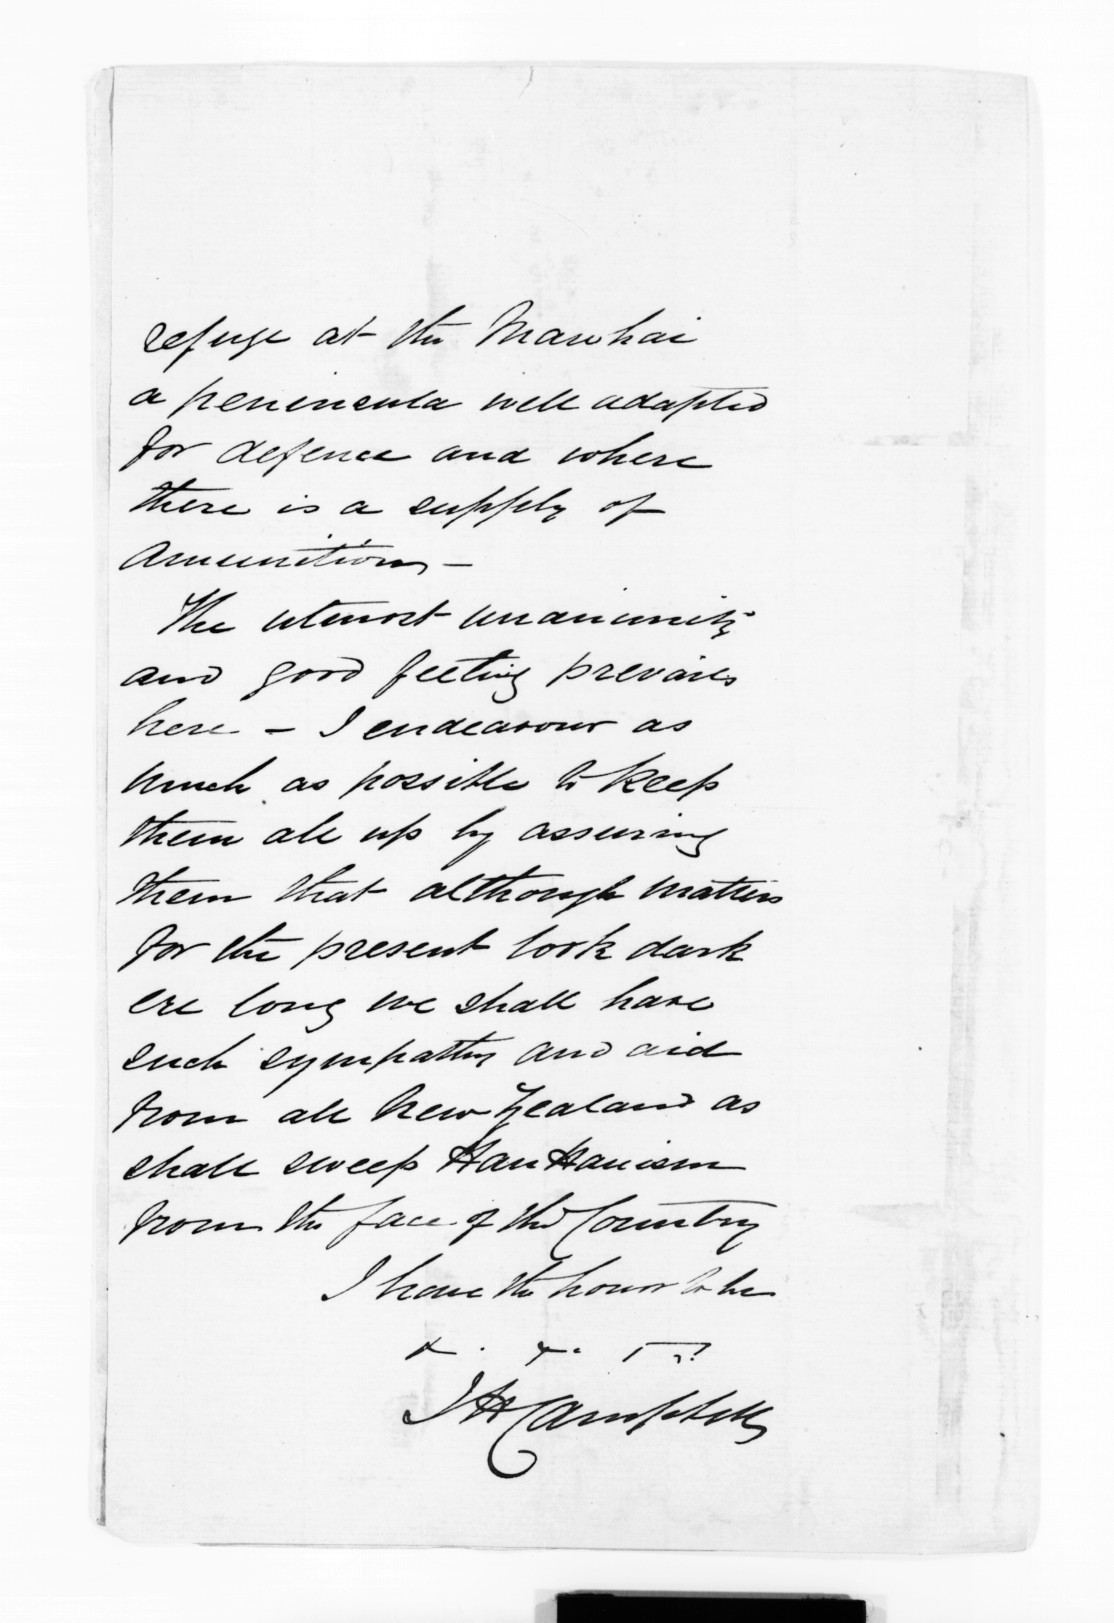 refuge at the Mawhai
a penincula well adapted
for defence and where
there is a supply of
amunition –
The utmost unanimity
and good feeling prevails
here – I endeavour as
much as possible to keep
them all up by assuring
them that although matters
for the present look dark
ere long we shall have
such sympathy and aid
from all New Zealand as
shall sweep HauHauism
from the face of the Country
I have the honor to be
J H Campbell